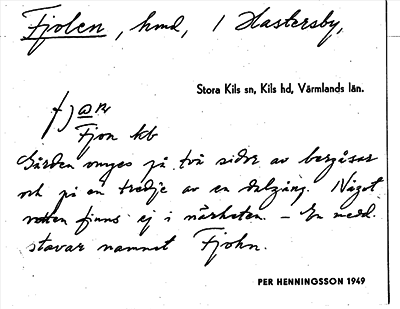 Fjolen, hmd, i Hastersby,
Stora Kils sn, Kils hd, Värmlands län.
f) a
Fjon kb
Gården omges på två sidor av bergåsar
och på en tredje av en dalgång. Något
vatten finns ej i närheten. – En medd.
stavar namnet Fjohn.
PER HENNINGSSON 1949